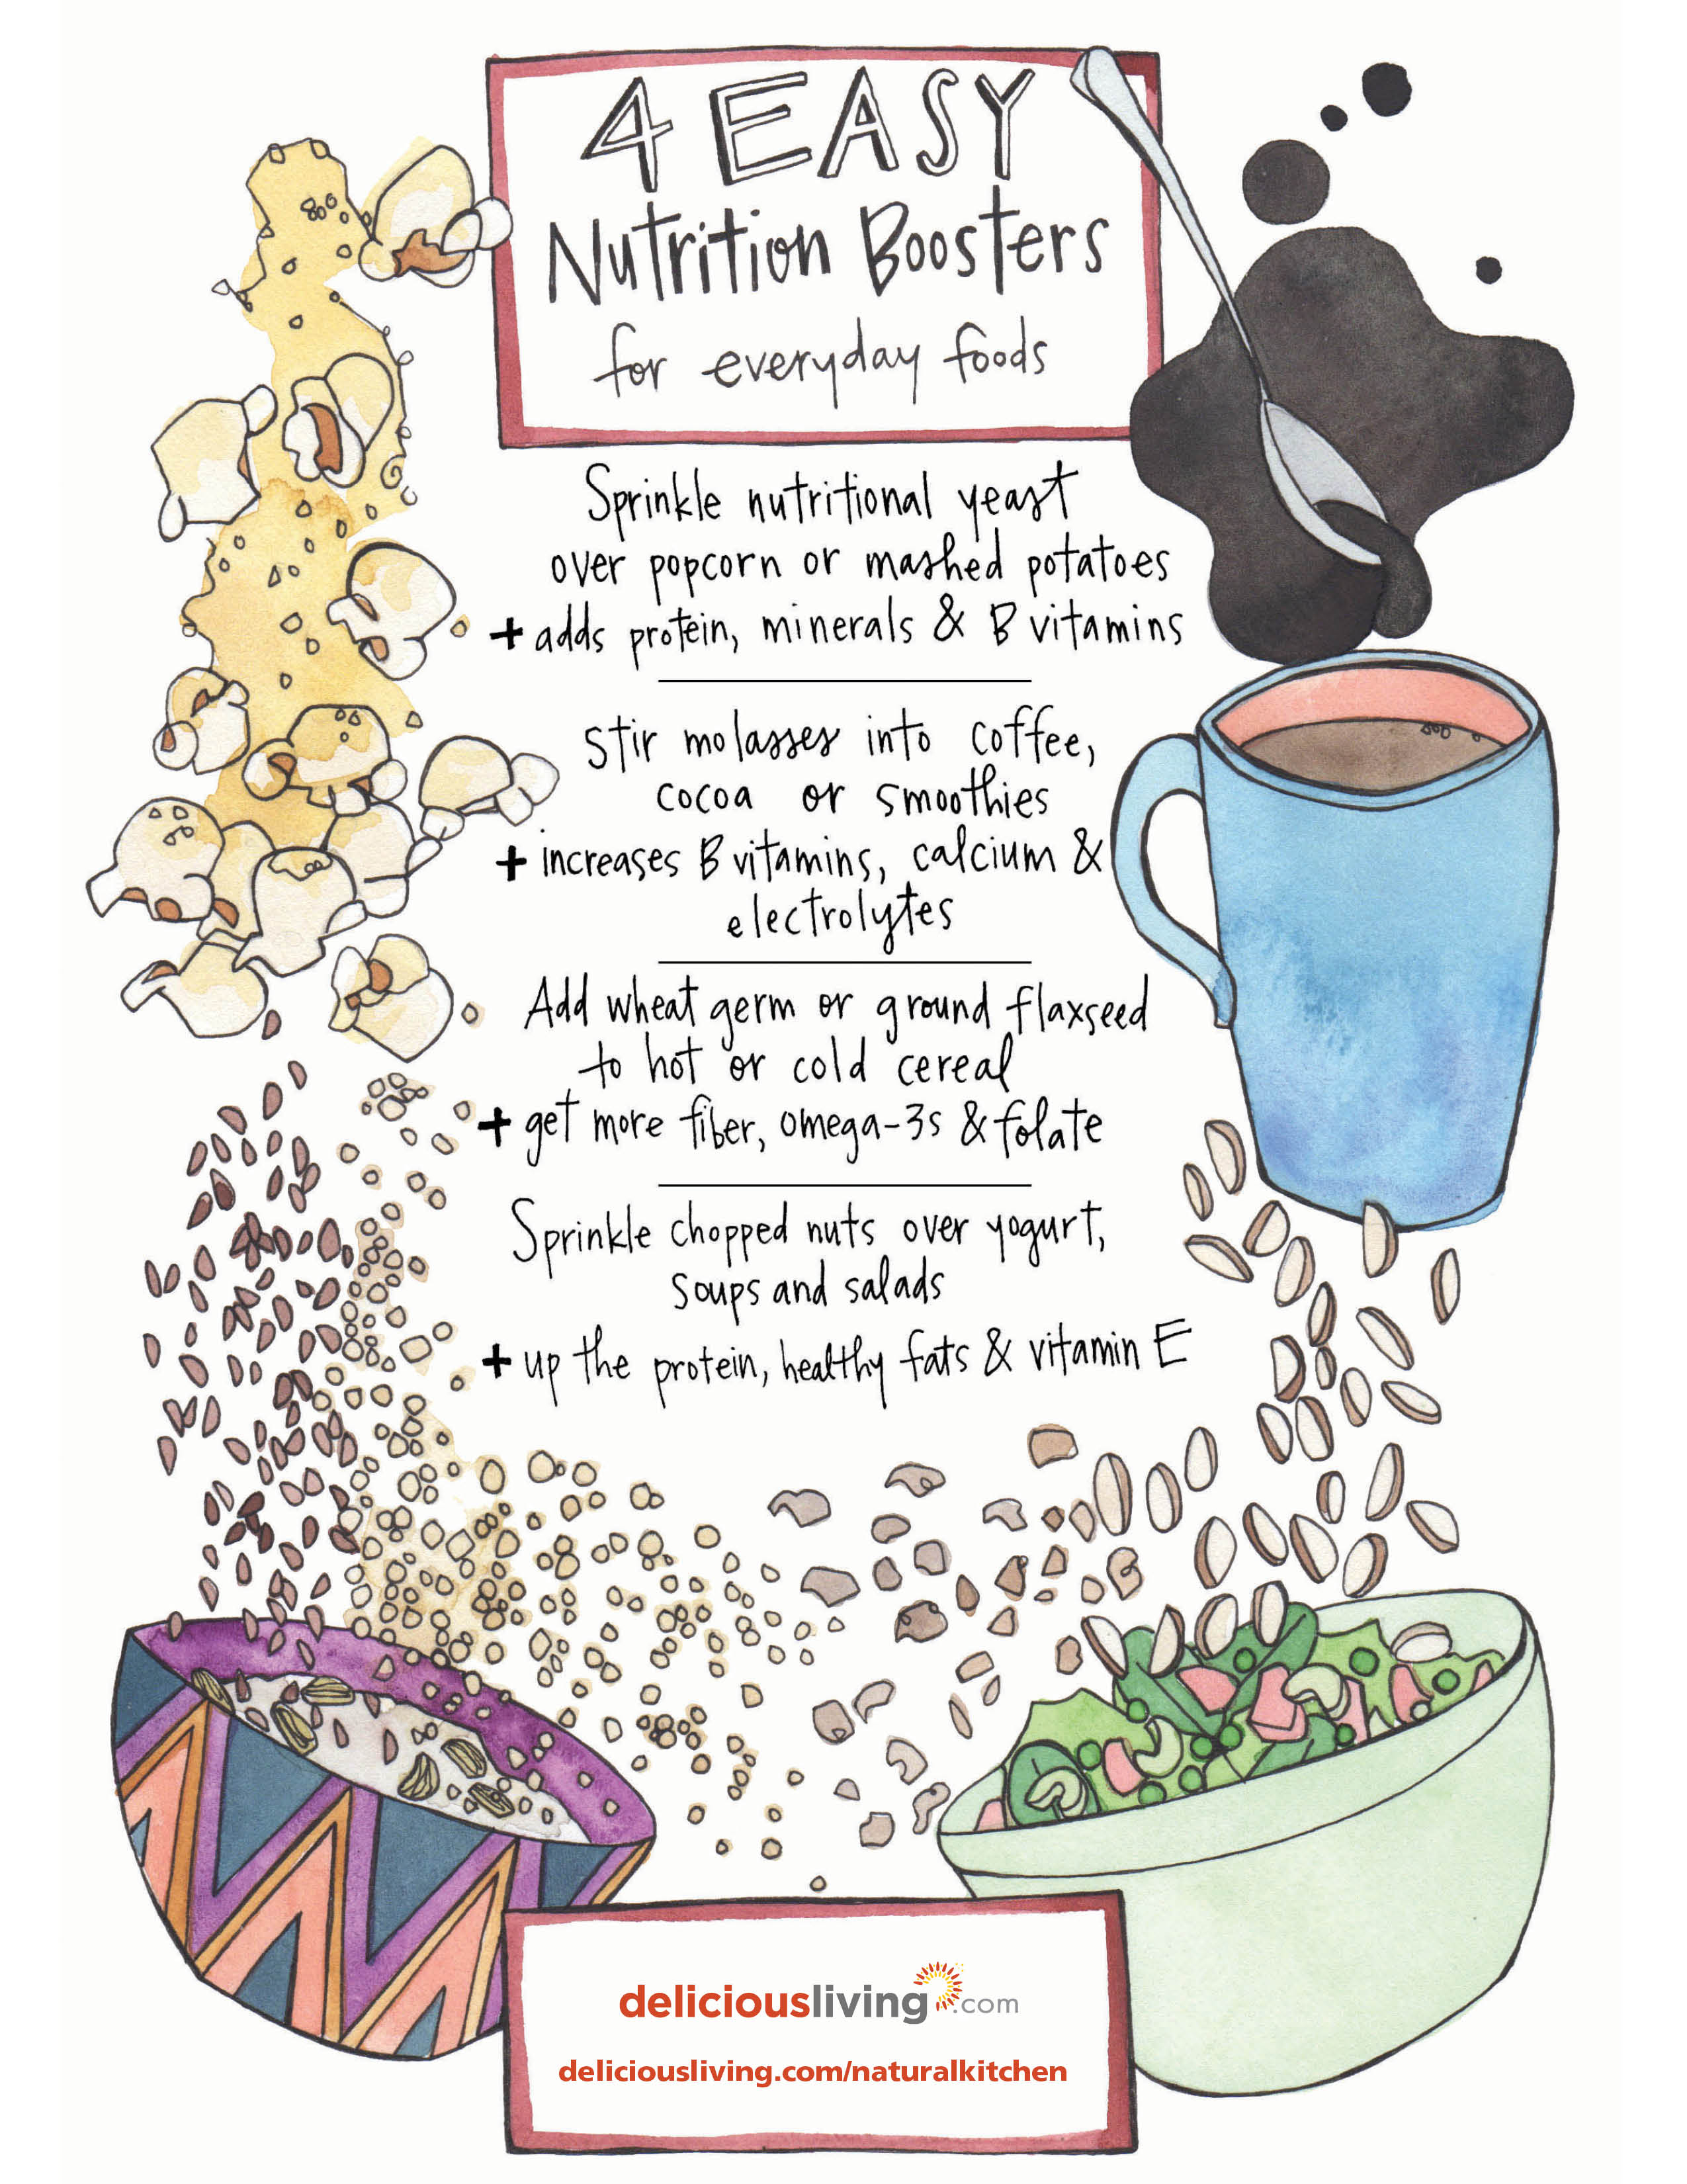 4 EASY
Nutrition Boosters
for everyday foods
Sprinkle nutritional yeast
over popcorn or mashed potatoes
+ adds protein, minerals & B vitamins
Stir molasses into coffee,
cocoa or smoothies
+ increases B vitamins, calcium &
electrolytes
Add wheat germ or ground flaxseed
to hot or cold cereal
+ get more fiber, omega-3s & folate
Sprinkle chopped nuts over yogurt,
soups and salads
+ up the protein, healthy fats & vitamin E
deliciousliving.com
deliciousliving.com/naturalkitchen